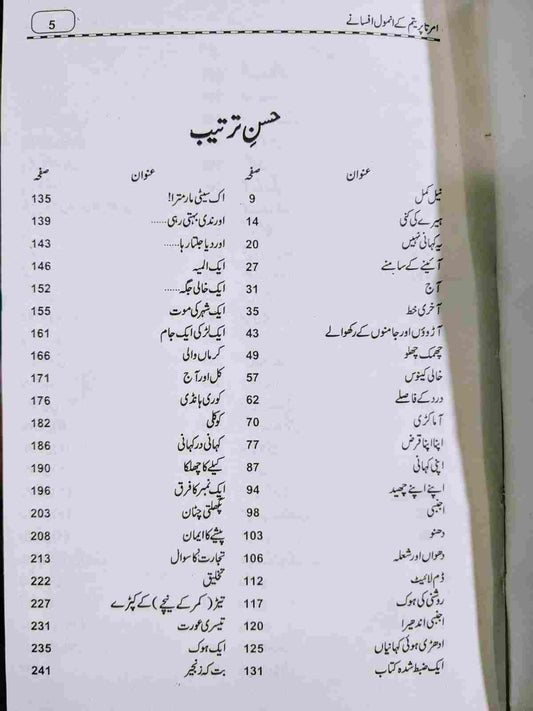 5 امرتا پریتم کے انمول افسانے
حسنِ ترتیب
عنوان صفحہ عنوان صفحہ
نیل کمل 9 اک سیٹی مار مترا! 135
ہیرے کی کنی 14 اور ندی بہتی رہی...... 139
یہ کہانی نہیں 20 اور دیا جلتا رہا...... 143
آئینے کے سامنے 27 ایک المیہ 146
آج 31 ایک خالی جگہ...... 152
آخری خط 35 ایک شہر کی موت 155
آڑوؤں اور جامنوں کے رکھوالے 43 ایک لڑکی ایک جام 161
چھمک چھلو 49 کرماں والی 166
خالی کینوس 57 کل اور آج 171
درد کے فاصلے 62 کوری ہانڈی 176
آماکڑی 70 کوکلی 182
اپنا اپنا قرض 77 کہانی در کہانی 186
اپنی کہانی 87 کیلے کا چھلکا 190
اپنے اپنے چھید 94 ایک نمبر کا فرق 196
اجنبی 98 پگھلتی چٹان 203
دھنو 103 پیشے کا ایمان 208
دھواں اور شعلہ 106 تجارت کا سوال 213
ڈم لائیٹ 112 تخلیق 222
روشنی کی ہوک 117 تیڑ (کمر کے نیچے) کے کپڑے 227
اجنبی اندھیرا 120 تیسری عورت 231
ادھڑی ہوئی کہانیاں 125 ایک ہوک 235
ایک ضبط شدہ کتاب 131 بت کہ زنجیر 241